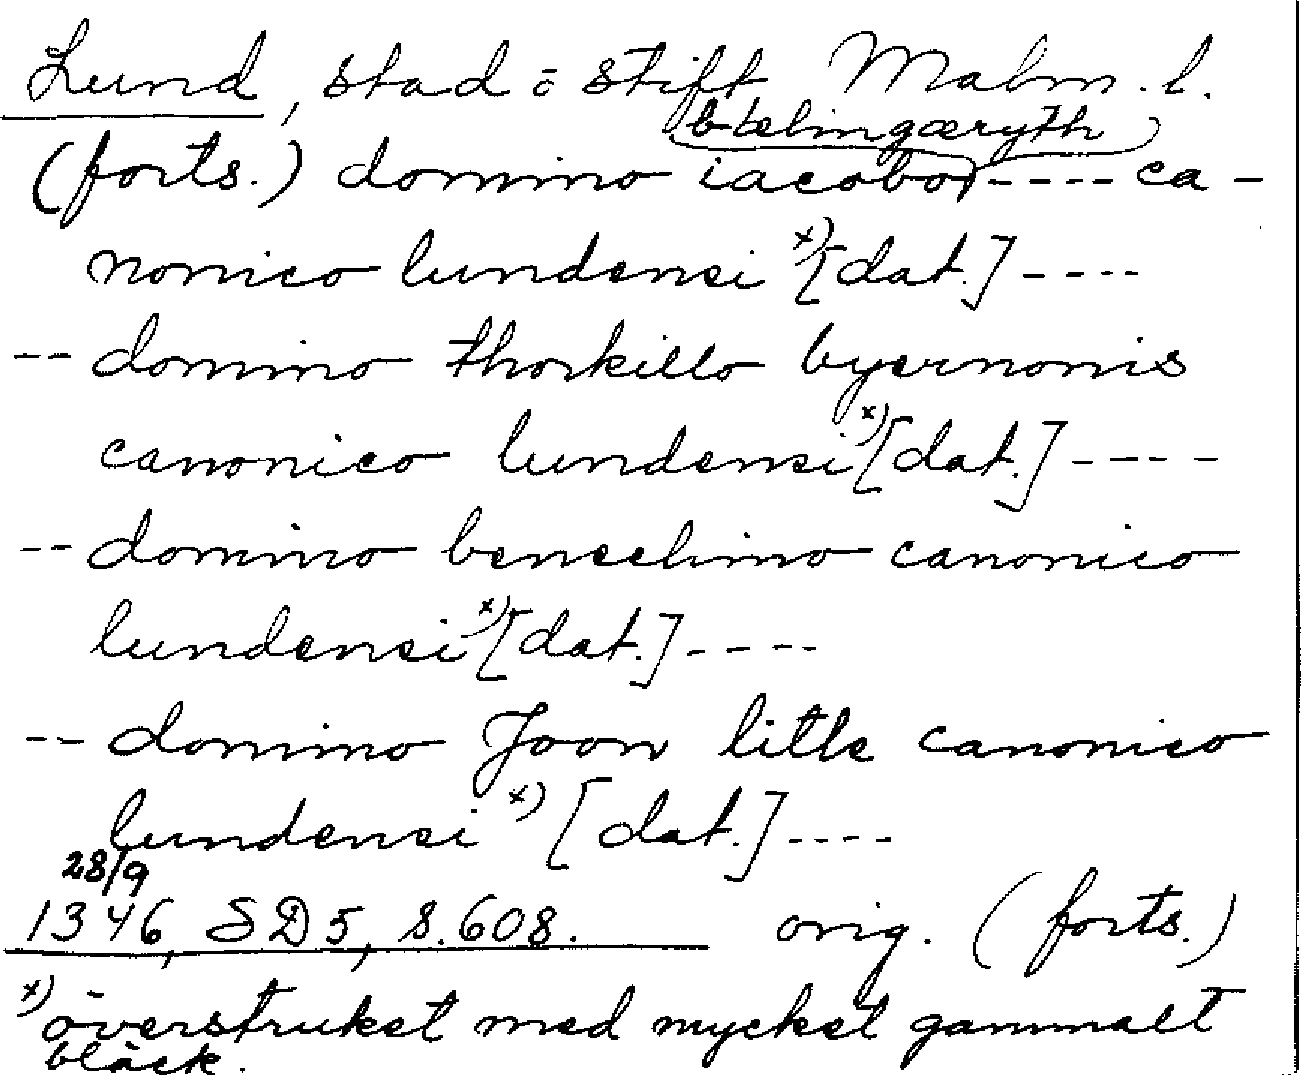 Lund, stad o stift Malm. l.
blekingæryth
(forts.) domino iacobo ---- ca-
nonico lundensi x) [dat.] ----
-- domino thorkillo byernonis
canonico lundensi x) [dat.] ----
-- domino benechino canonico
lundensi x) [dat.] ----
-- domino Joon litle canonico
lundensi x) [dat.] ----
28/9
1346, SD 5, s. 608. orig. (forts.)
x) överstruket med mycket gammalt
bläck.